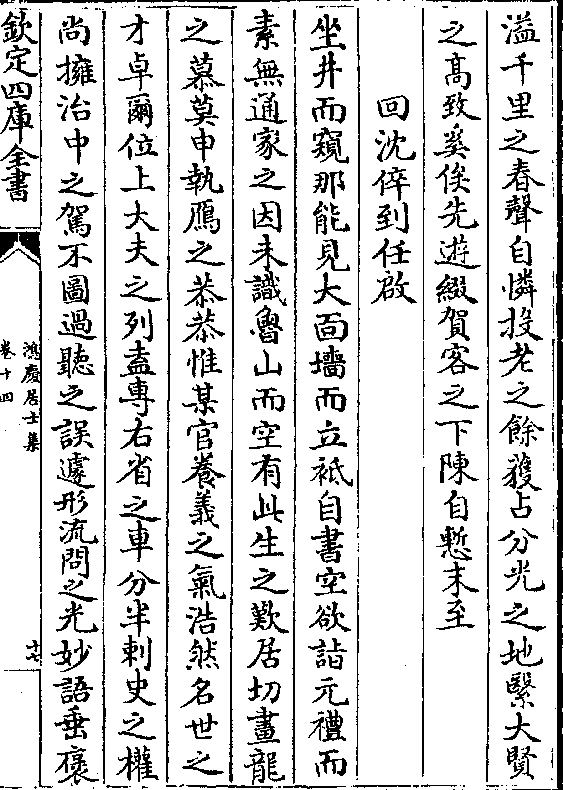 溢千里之春聲自憐投老之餘獲占分光之地繄大賢
之髙致奚俟先遊綴賀客之下陳自慙末至
回沈倅到任啟
坐井而窺那能見大面墻而立祗自書空欲詣元禮而
素無通家之因未識魯山而空有此生之歎居切畫龍
之慕莫申執鴈之恭恭惟某官養義之氣浩然名世之
才卓爾位上大夫之列盍專右省之車分半刺史之權
尚擁治中之駕不圖過聽之誤遽形流問之光妙語垂褒
欽定四庫全書
鴻慶居士集
卷十四
十七